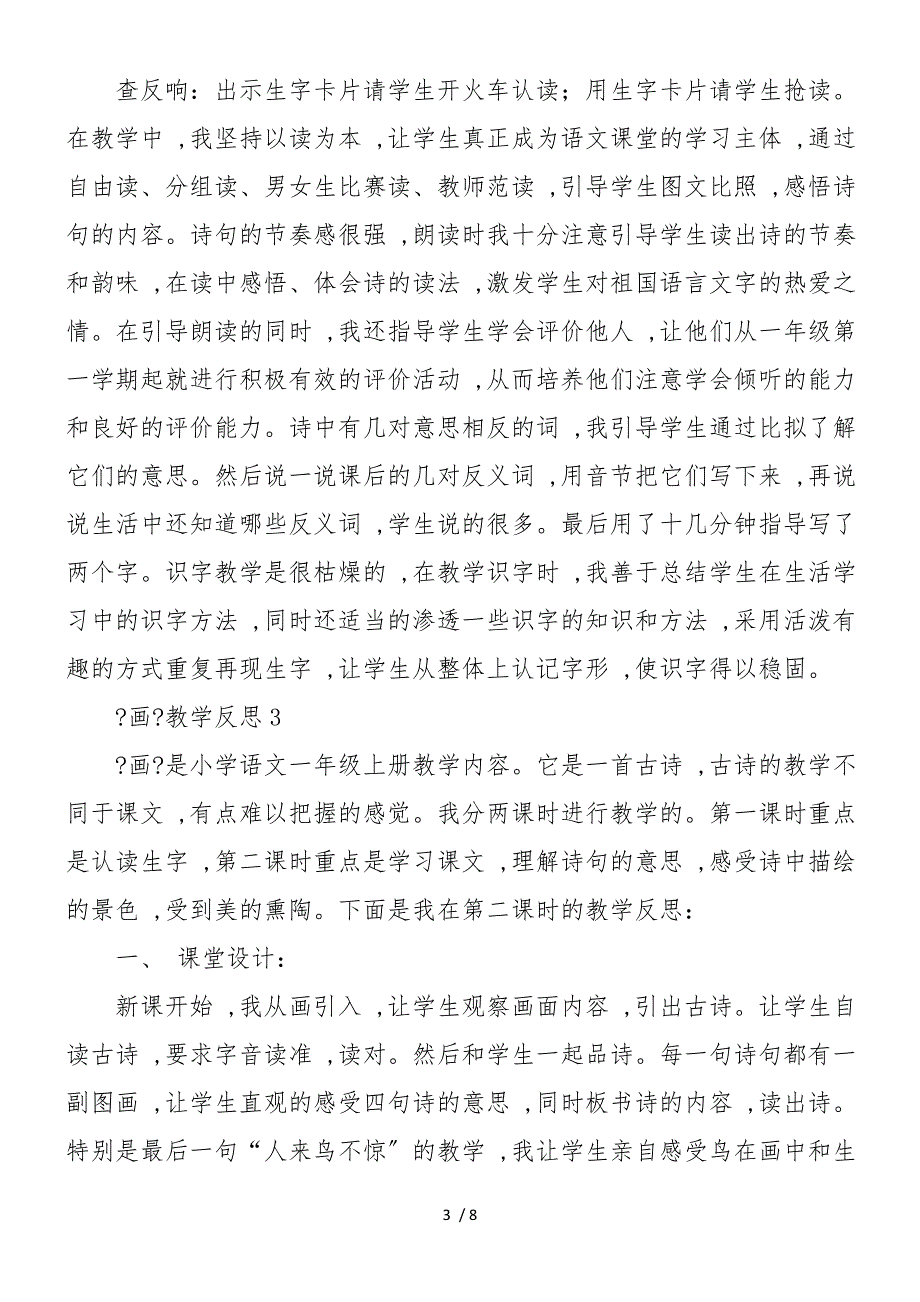 查反响：出示生字卡片请学生开火车认读；用生字卡片请学生抢读。
在教学中 ,我坚持以读为本 ,让学生真正成为语文课堂的学习主体 ,通过
自由读、分组读、男女生比赛读、教师范读 ,引导学生图文比照 ,感悟诗
句的内容。诗句的节奏感很强 ,朗读时我十分注意引导学生读出诗的节奏
和韵味 ,在读中感悟、体会诗的读法 ,激发学生对祖国语言文字的热爱之
情。在引导朗读的同时 ,我还指导学生学会评价他人 ,让他们从一年级第
一学期起就进行积极有效的评价活动 ,从而培养他们注意学会倾听的能力
和良好的评价能力。诗中有几对意思相反的词 ,我引导学生通过比拟了解
它们的意思。然后说一说课后的几对反义词 ,用音节把它们写下来 ,再说
说生活中还知道哪些反义词 ,学生说的很多。最后用了十几分钟指导写了
两个字。识字教学是很枯燥的 ,在教学识字时 ,我善于总结学生在生活学
习中的识字方法 ,同时还适当的渗透一些识字的知识和方法 ,采用活泼有
趣的方式重复再现生字 ,让学生从整体上认记字形 ,使识字得以稳固。
?画?教学反思 3
?画?是小学语文一年级上册教学内容。它是一首古诗 ,古诗的教学不
同于课文 ,有点难以把握的感觉。我分两课时进行教学的。第一课时重点
是认读生字 ,第二课时重点是学习课文 ,理解诗句的意思 ,感受诗中描绘
的景色 ,受到美的熏陶。下面是我在第二课时的教学反思：
一、 课堂设计：
新课开始 ,我从画引入 ,让学生观察画面内容 ,引出古诗。让学生自
读古诗 ,要求字音读准 ,读对。然后和学生一起品诗。每一句诗句都有一
副图画 ,让学生直观的感受四句诗的意思 ,同时板书诗的内容 ,读出诗。
特别是最后一句“人来鸟不惊〞的教学 ,我让学生亲自感受鸟在画中和生
3 / 8